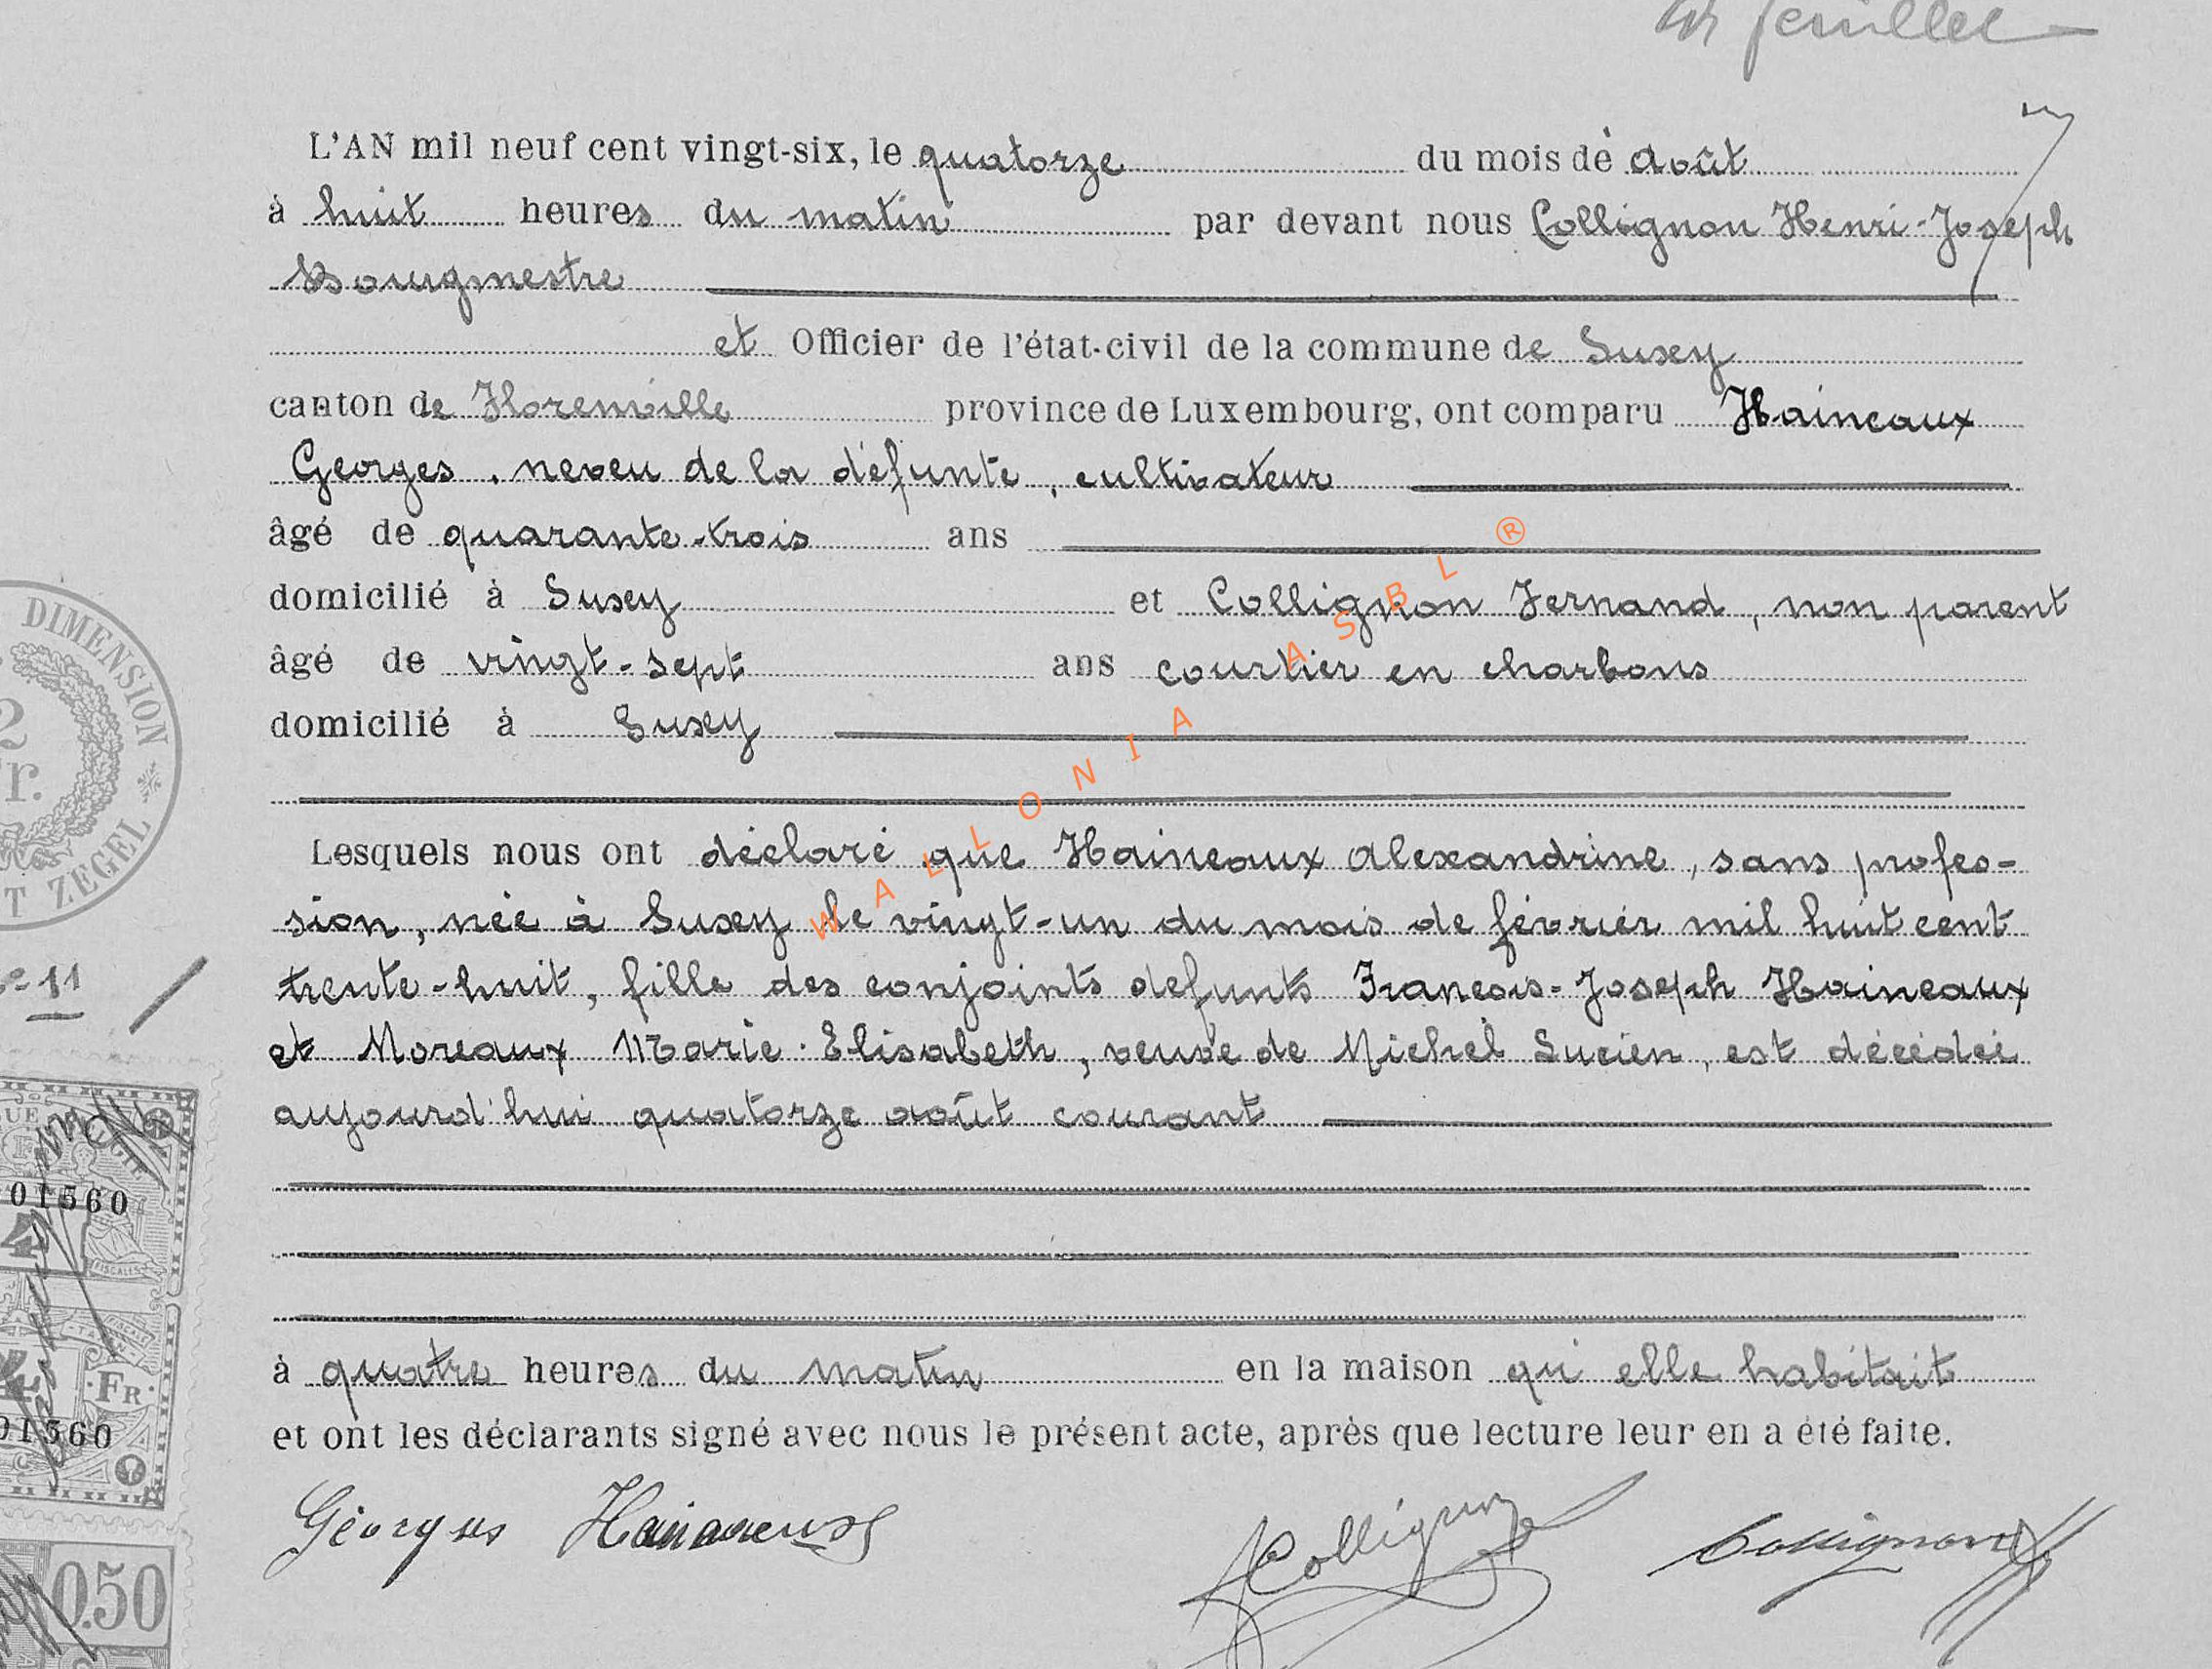 feuillet
L'AN mil neuf cent vingt-six, le quatorze du mois de Août
à huit heures du matin par devant nous Collignon Henri-Joseph
Bourgmestre
et Officier de l'état-civil de la commune de Suxey
canton de Florenville province de Luxembourg, ont comparu Haineaux
Georges, neveu de la défunte, cultivateur
âgé de quarante-trois ans
domicilié à Suxey et Collignon Fernand, non parent
âgé de vingt-sept ans courtier en charbons
domicilié à Suxey
Lesquels nous ont déclaré que Haineaux Alexandrine, sans profes-
sion, née à Suxey le vingt-un du mois de février mil huit cent
trente-huit, fille des conjoints defunts François-Joseph Haineaux
et Moreaux Marie-Elisabeth, veuve de Michel Lucien, est décédée
aujourd'hui quatorze août courant
à quatre heures du matin en la maison qu'elle habitait
et ont les déclarants signé avec nous le présent acte, après que lecture leur en a été faite.
Géorges Haineaux Collignon Collignon
DIMENSION
2
Fr.
T ZEGEL
11
01560
4
FISCALES
FR
01560
0.50
WALLONIA ASBL ®